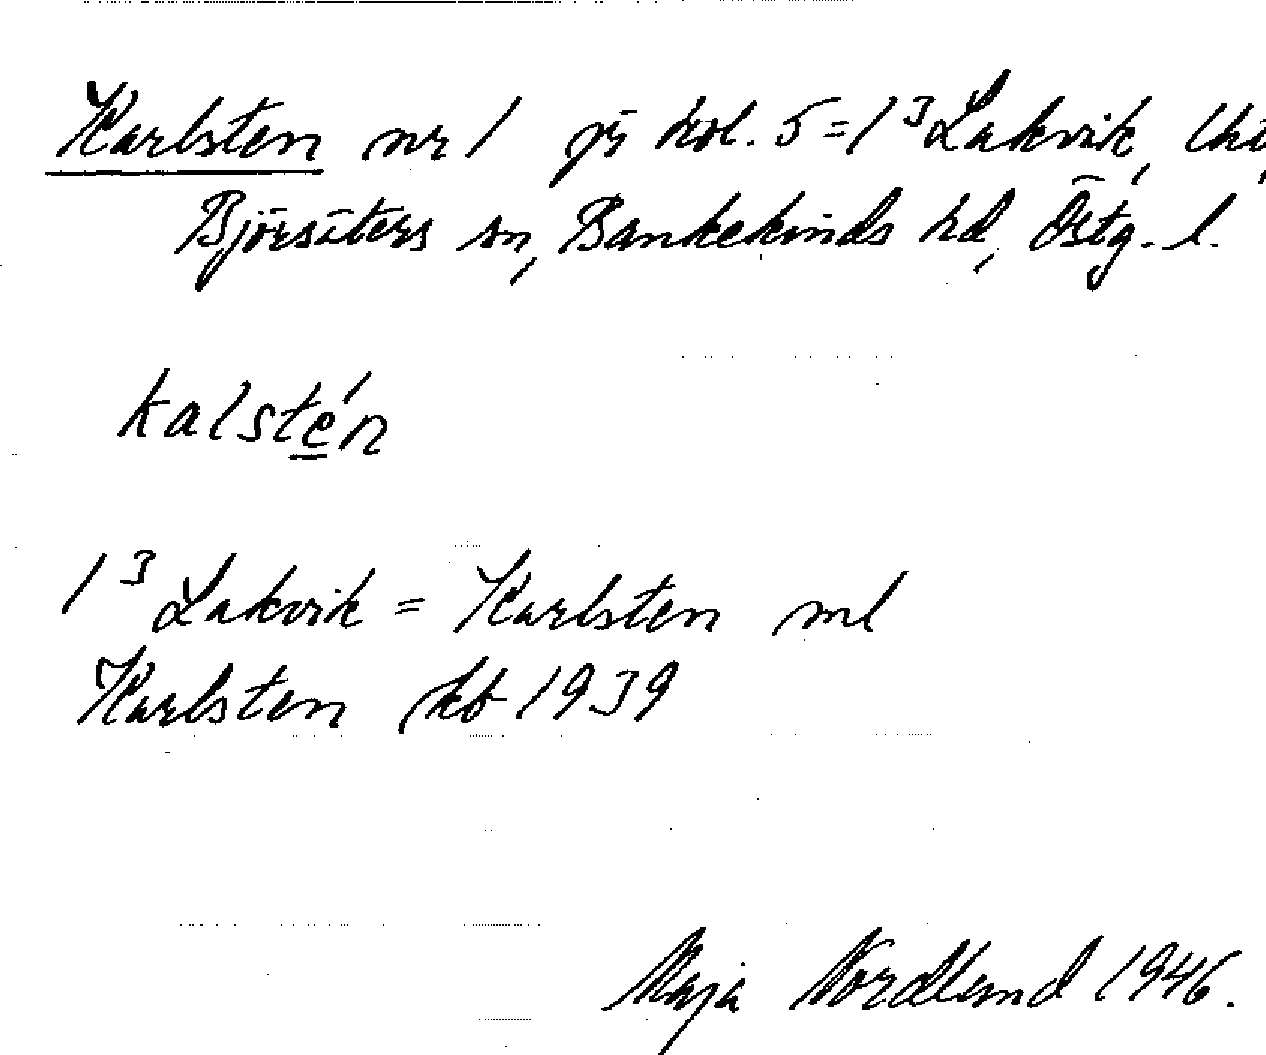 Karlsten nr 1 jr kol. 5 = 1³ Lakvik,
Björsäters sn, Bankekinds hd, Östg. l.
kalstén
1³ Lakvik = Karlsten ml
Karlsten kb 1939
Maja Nordlund 1946.